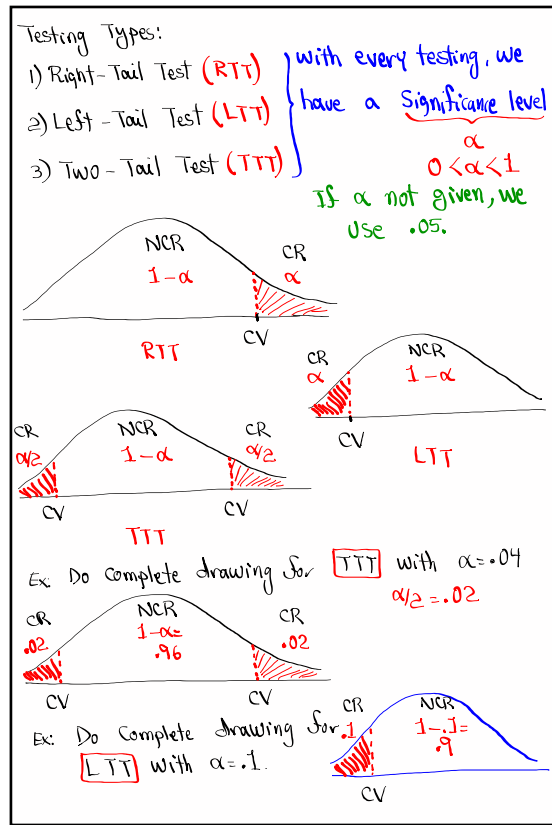 Testing Types:
1) Right-Tail Test (RTT)
2) Left-Tail Test (LTT)
3) Two-Tail Test (TTT)
with every testing, we
have a Significance level
α
0<α<1
If α not given, we
use .05.
NCR
1-α
CR
α
CV
RTT
CR
α
NCR
1-α
CV
LTT
CR
α/2
NCR
1-α
CR
α/2
CV
CV
TTT
Ex: Do Complete drawing for TTT with α=.04
α/2=.02
CR
.02
NCR
1-α=
.96
CR
.02
CV
CV
Ex: Do Complete drawing for
LTT with α=.1.
CR
.1
NCR
1-.1=
.9
CV